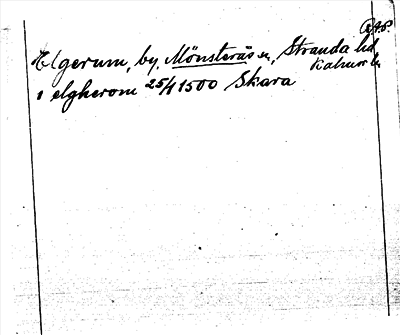 RAP
Elgerum, by, Mönsterås sn, Stranda hd
Kalmar län
i elgherom 25/1 1500 Skara